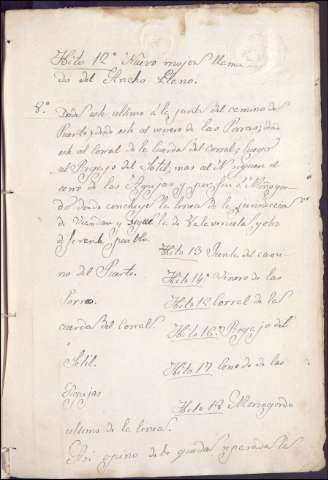 Hito 12º Nuevo mojon llama
do del Hacho Llano.
8.º Desde este ultimo á la junta del camino del
Puerto, desde este al venero de las Porras, desde
este al corral de la cuerda del corral, y luego
al Regajo del Sotil, mas allá siguen el
cerro de las Agujas y por fin á Menagor
do donde concluye la linea de la jurisdiccion
de y la de y otro
de pueblo.
Hito 13 Junta del cami
no del Puerto.
Hito 14º Venero de las
Porras.
Hito 15 Corral de la
cuerda del Corral.
Hito 16º Regajo del
Sotil.
Hito 17 Cerro de las
Agujas
Hito 18 Menagordo
ultimo de la linea.
Asi opino debe quedar